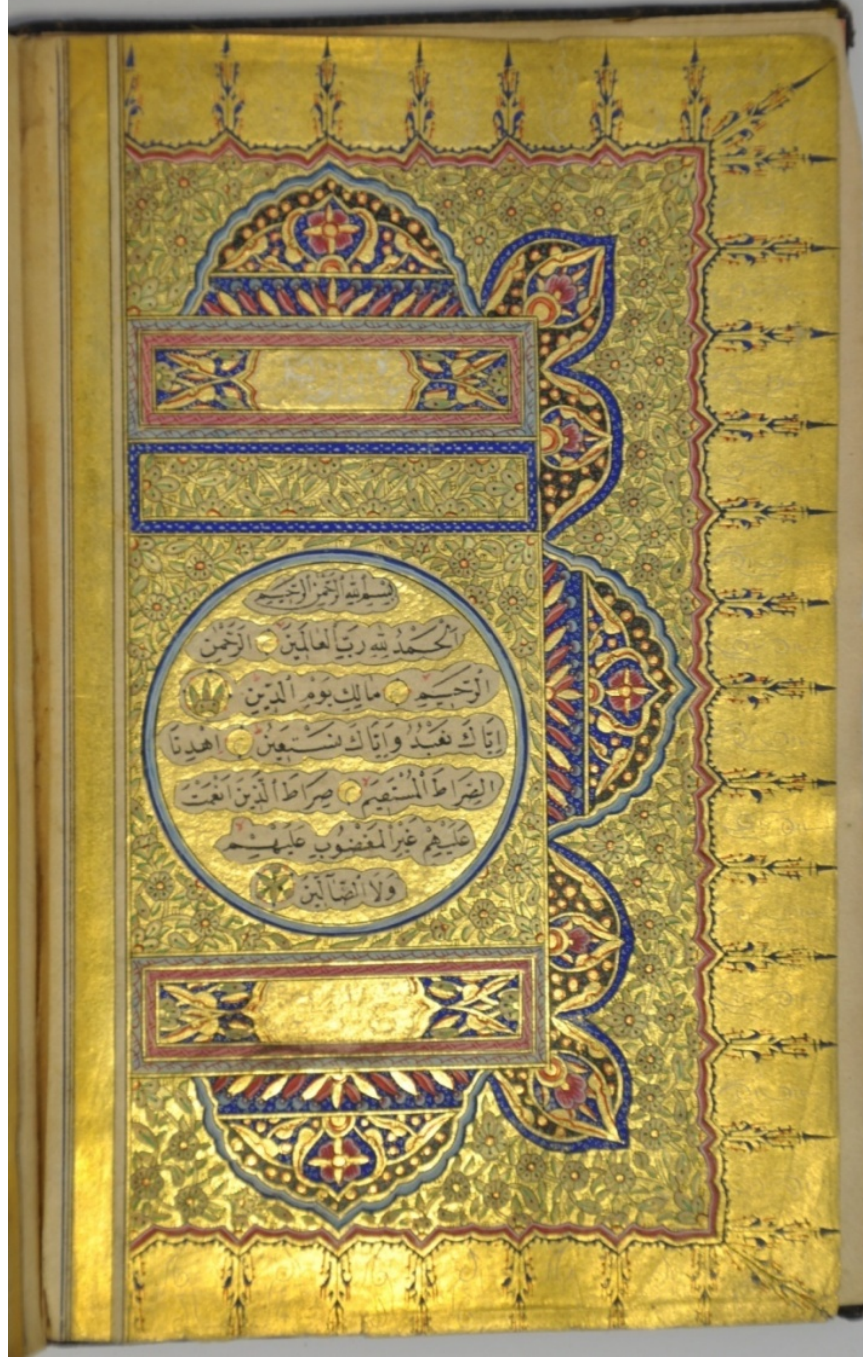 بِسْمِ اللهِ الرَّحْمٰنِ الرَّحِيمِ
اَلْحَمْدُ لِلّٰهِ رَبِّ الْعَالَمِينَ الرَّحْمٰنِ
الرَّحِيمِ مَالِكِ يَوْمِ الدِّينِ
اِيَّاكَ نَعْبُدُ وَاِيَّاكَ نَسْتَعِينُ اِهْدِنَا
الصِّرَاطَ الْمُسْتَقِيمَ صِرَاطَ الَّذِينَ اَنْعَمْتَ
عَلَيْهِمْ غَيْرِ الْمَغْضُوبِ عَلَيْهِمْ
وَلَا الضَّٓالِّينَ